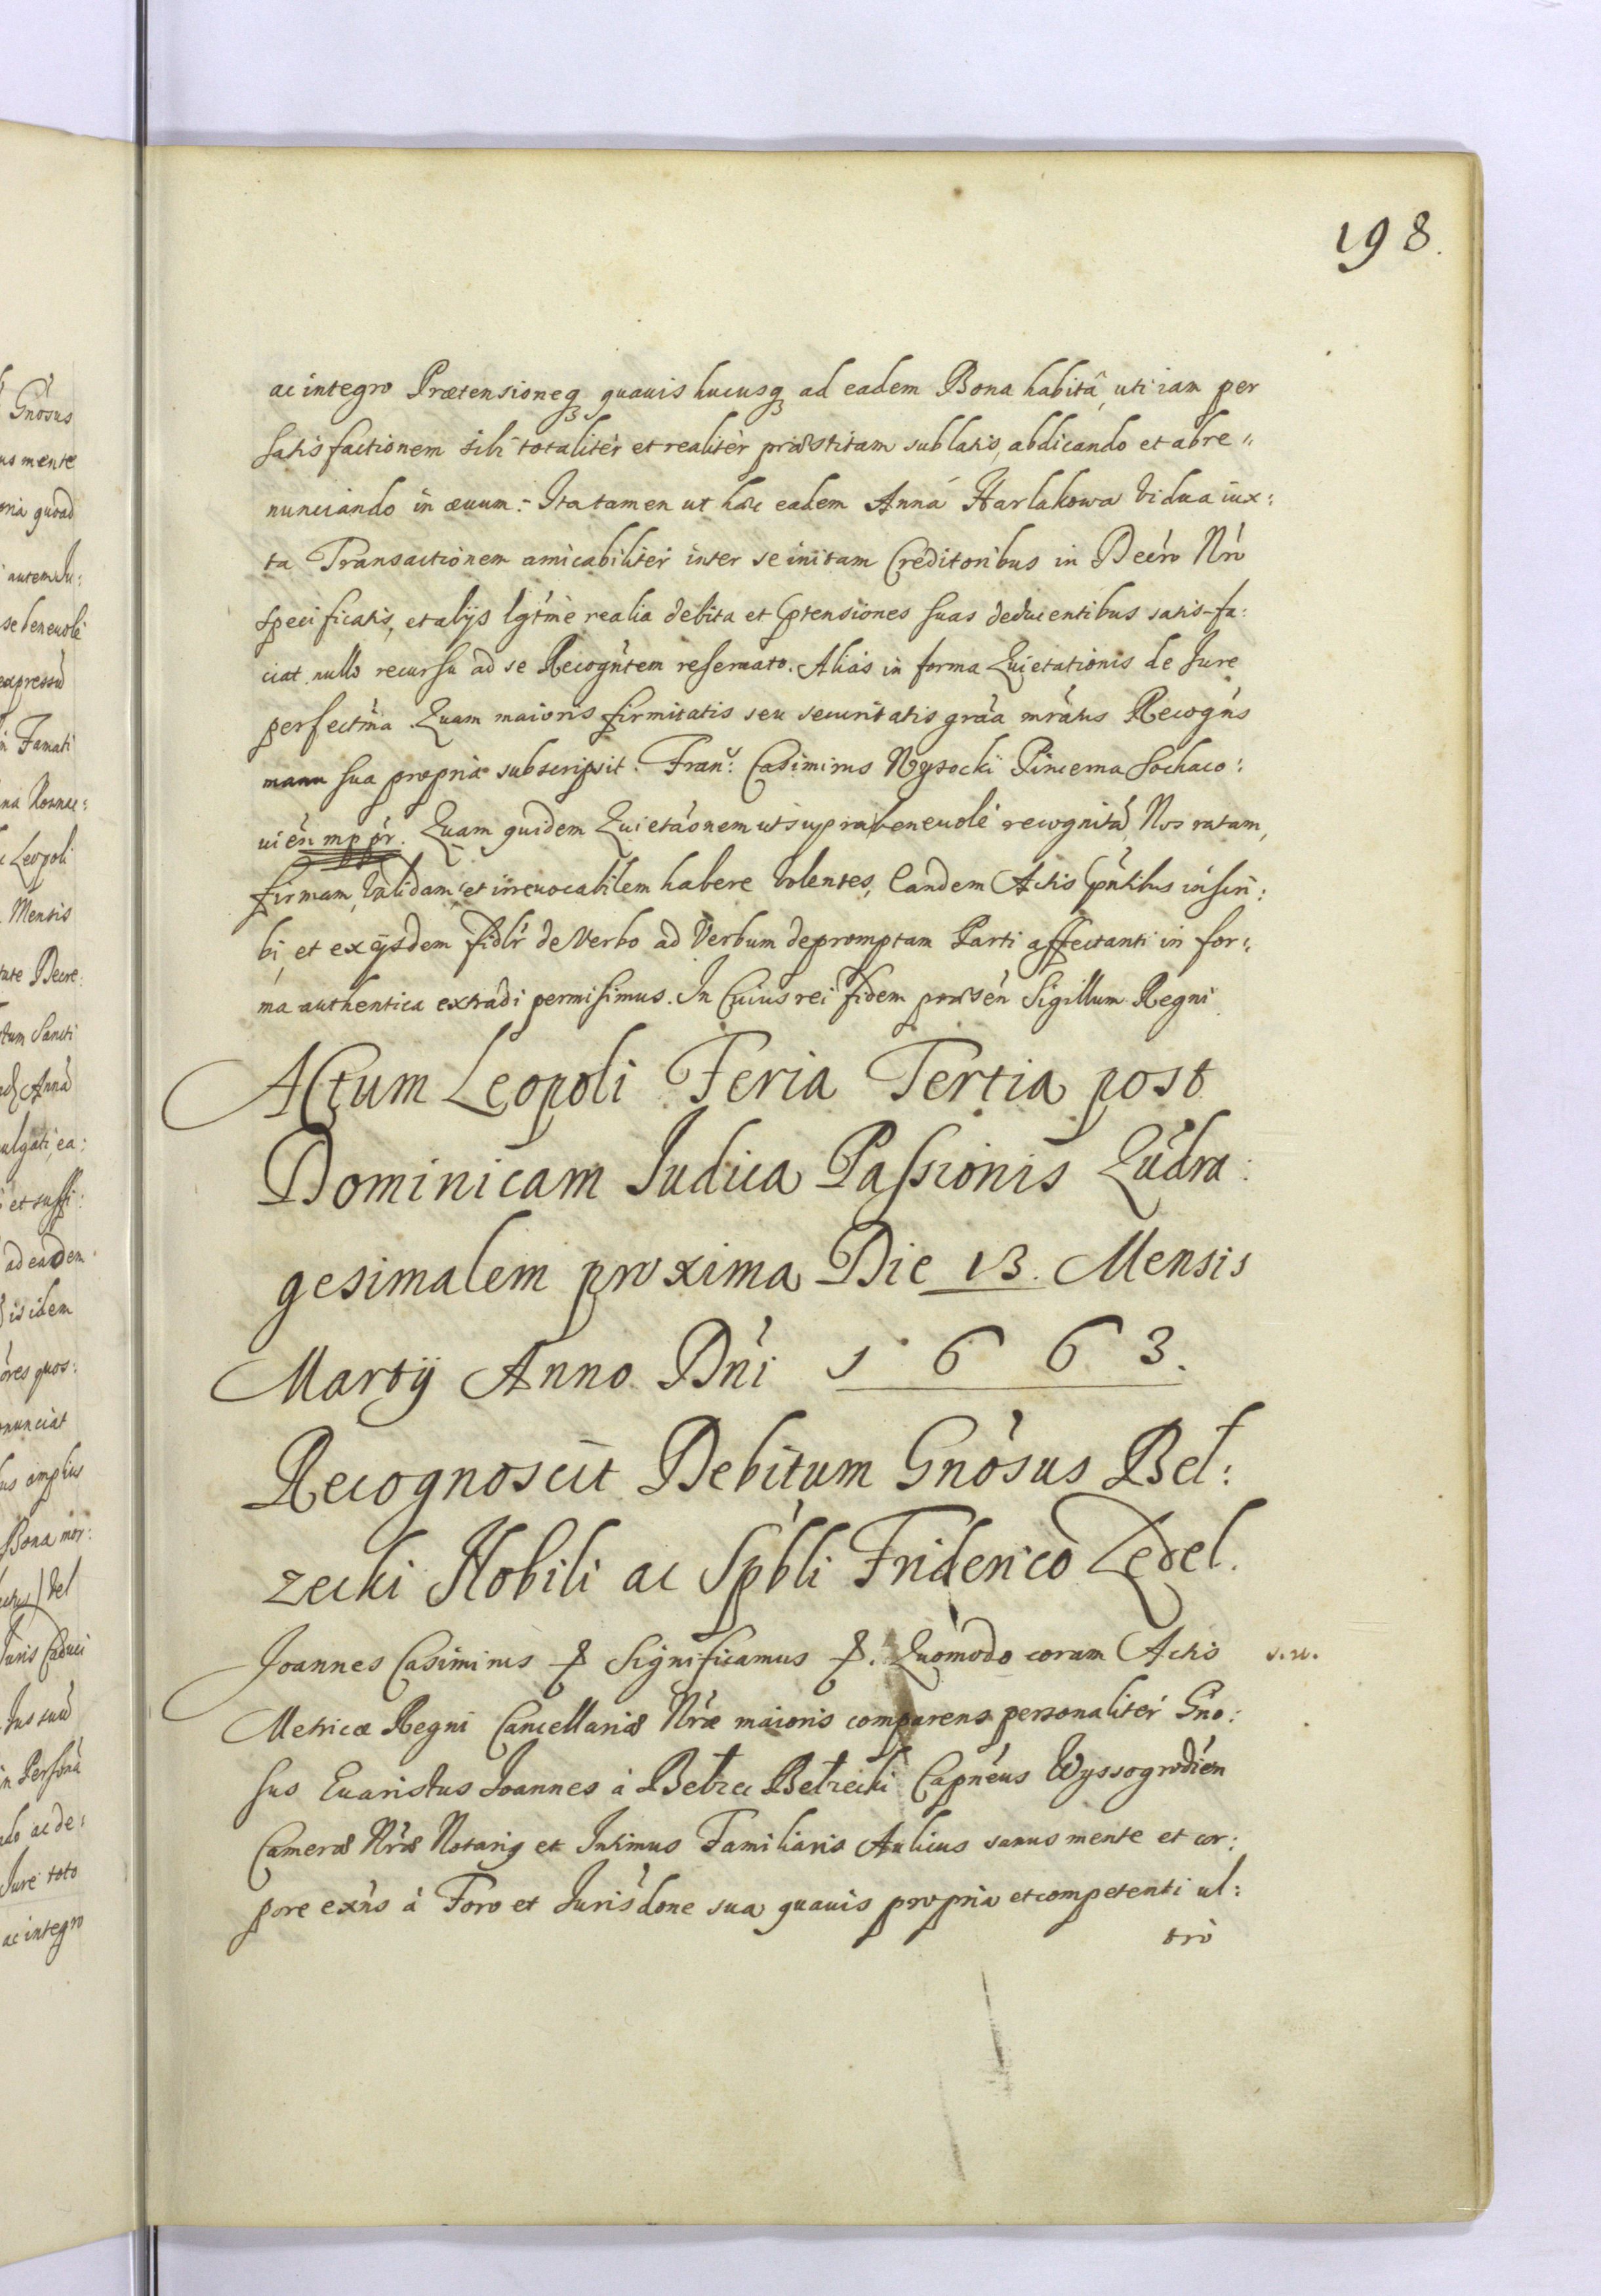 198.
ac integro Prætensioneq quauis hucusq ad eadem Bona habitâ, uti iam per
satisfactionem sibi totalitèr et realitèr præstitam sublatis, abdicando et abre:
nunciando in æuum. Ita tamen ut hæc eadem Anna Harlakowa Vidua iux:
ta Transactionem amicabilitèr inter se initam Creditoribus in Decro Nro
specificatis, et alijs lgtme realia debita et Ptensiones suas deducentibus satis-fa:
ciat nullo recursu ad se Recogntem reseruato. Aliàs in forma Quietationis de Jure
perfectma. Quam maioris firmitatis seu securitatis graa mratus Recogns
manu sua propria subscripsit. Fran: Casimirus Wysocki Pincerna Sochaco:
uien mp pr. Quam quidem Quietaonem ut supra beneuolè recognitã, Nos ratam,
firmam, Validam, et irreuocabilem habere Volentes, Eandem Actis Pntibus inscri:
bi, et ex ijsdem fidlr de Verbo ad Verbum depromptam Parti affectanti in for:
ma authentica extradi permisimus. In Cuius rei fidem præsen Sigillum Regni
Actum Leopoli Feria Tertia post
Dominicam Judica Passionis Qudra:
gesimalem proxima Die 13. Mensis
Martij Anno Dni 1663.
Recognoscit Debitum Gnosus Beł:
zecki Nobili ac Spbli Friderico Zedel.
Joannes Casimirus & Significamus &. Quomodo coram Actis s.n.
Metricæ Regni Cancellariæ Nræ maioris comparens personalitèr Gno:
sus Euaristus Joannes à Bełzec Bełzecki Capneus Wyssogrodien
Cameræ Nræ Notarig et Intimus Familiaris Aulicus sanus mente et cor:
pore exns à Foro et Jurisdone sua quauis propria et competenti ul:
trò